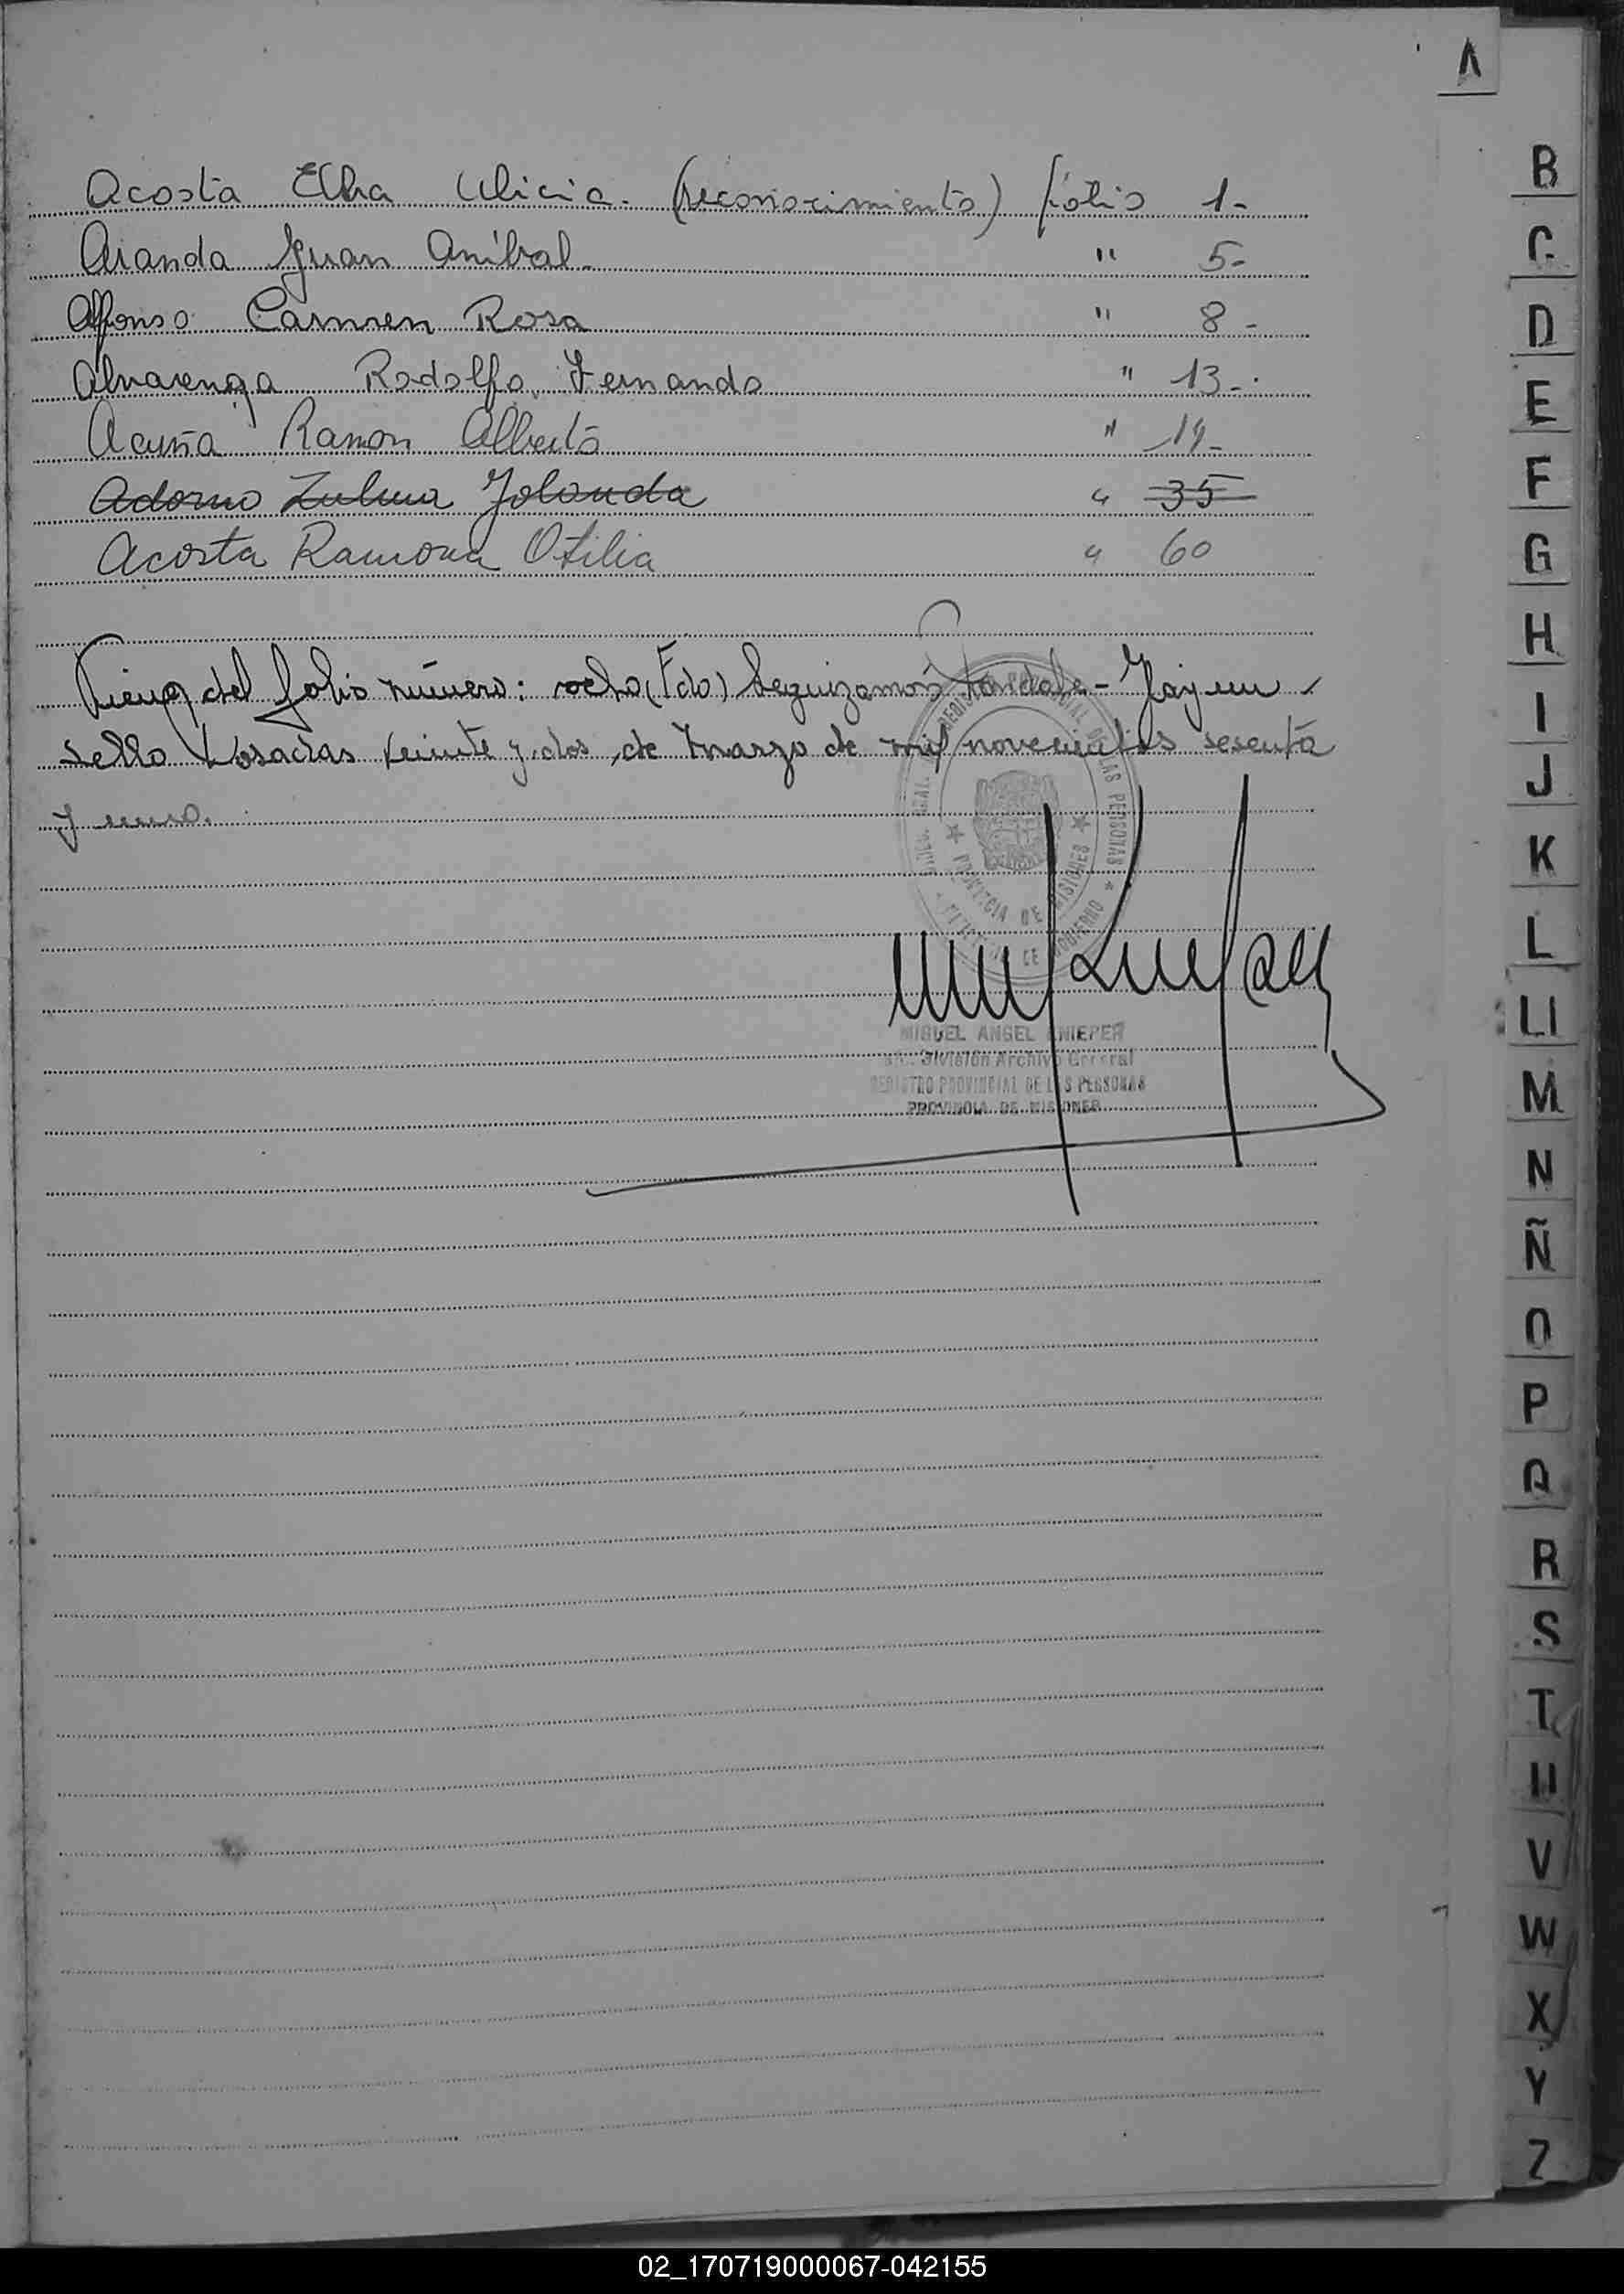 A
Acosta Elba Alicia. (reconocimiento) folio 1-
Aranda Juan Aníbal.- " 5-
Affonso Carmen Rosa " 8-
Alvarenga Rodolfo Fernando " 13-.
Acuña Ramon Alberto " 19-
Adorno Zulma Yolanda " 35
Acosta Ramona Otilia " 60
Viene del folio número: ocho (Fdo) Seguizamón - Hay un
sello Posadas veinte y dos de marzo de mil novecientos sesenta
y uno.
PROVINCIA DE MISIONES
MIGUEL ANGEL KNIEPER
División Archivo General
REGISTRO PROVINCIAL DE LAS PERSONAS
PROVINCIA DE MISIONES
B
C
D
E
F
G
H
I
J
K
L
Ll
M
N
Ñ
O
P
Q
R
S
T
U
V
W
X
Y
Z
02_170719000067-042155